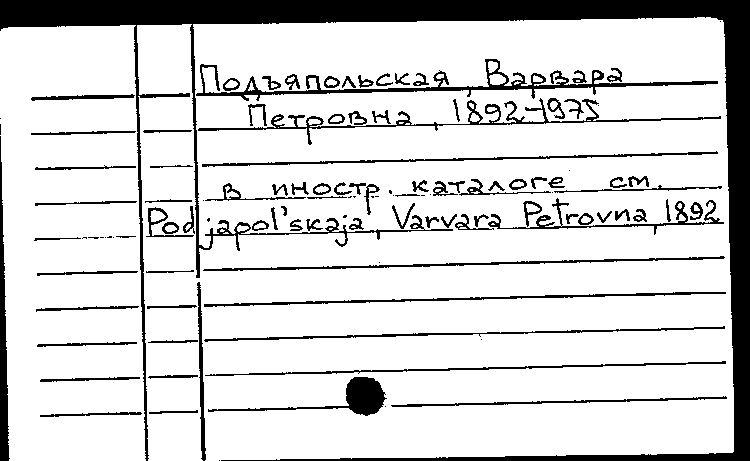 Подъяпольская, Варвара
Петровна, 1892-1975
в иностр. каталоге см.
Podjapol'skaja, Varvara Petrovna, 1892